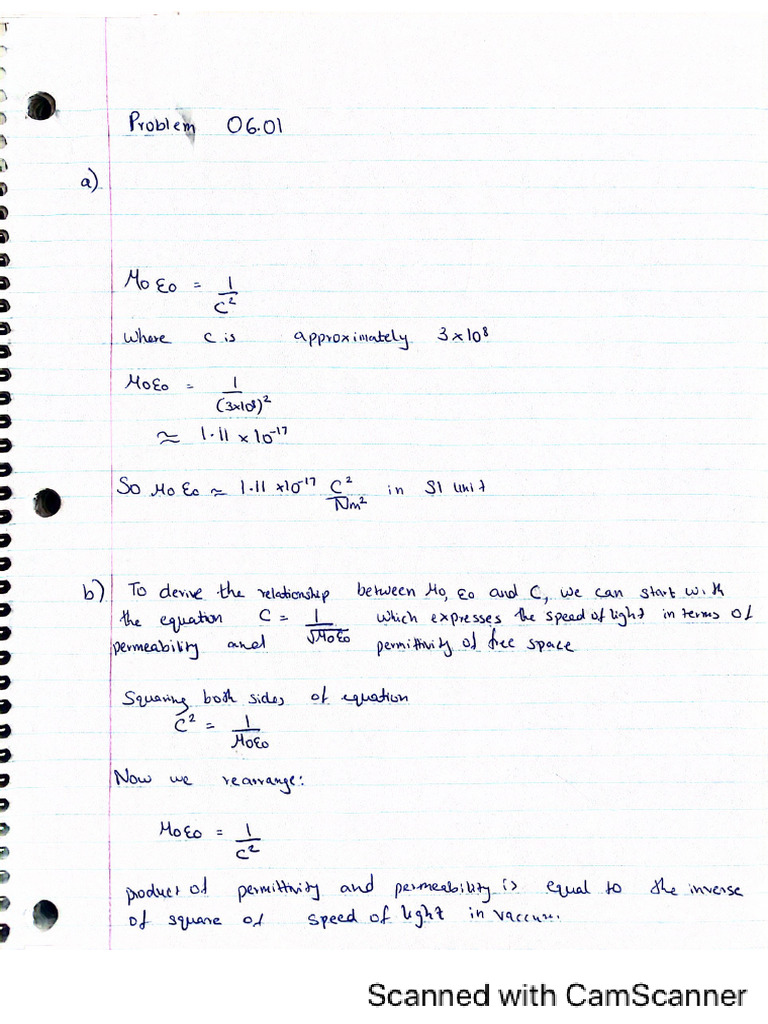 Problem 06.01
a)
μ0 ε0 = 1/c²
where c is approximately 3×10⁸
μ0ε0 = 1/(3×10⁸)²
≈ 1.11 × 10⁻¹⁷
So μ0 ε0 ≈ 1.11 ×10⁻¹⁷ C²/Nm² in SI unit
b) To derive the relationship between μ0, ε0 and C, we can start with
the equation C = 1/√μ0ε0 which expresses the speed of light in terms of
permeability and permittivity of free space
Squaring both sides of equation
C² = 1/μ0ε0
Now we rearrange:
μ0ε0 = 1/c²
product of permittivity and permeability is equal to the inverse
of square of speed of light in vaccum.
Scanned with CamScanner